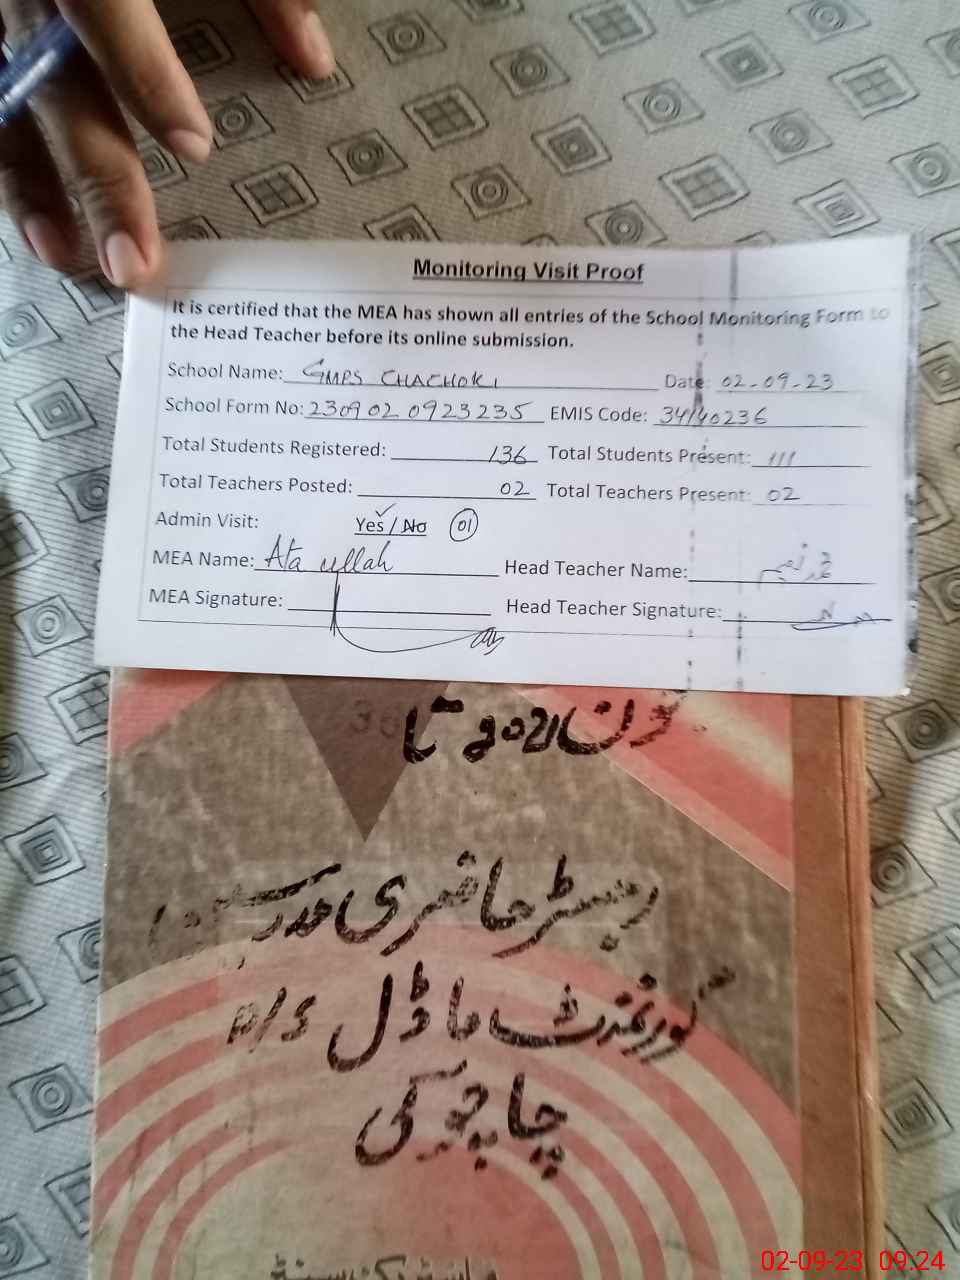 Monitoring Visit Proof
It is certified that the MEA has shown all entries of the School Monitoring Form to
the Head Teacher before its online submission.
School Name: GMPS CHACHOKI Date: 02-09-23
School Form No: 230902 0923235 EMIS Code: 34140236
Total Students Registered: 136 Total Students Present: 111
Total Teachers Posted: 02 Total Teachers Present: 02
Admin Visit: Yes / No 01
MEA Name: Ata ullah Head Teacher Name:
MEA Signature: Head Teacher Signature:
جون 2021 تا
رجسٹر حاضری مدرسین
گورنمنٹ ماڈل P/S
چاچوکی
02-09-23 09:24